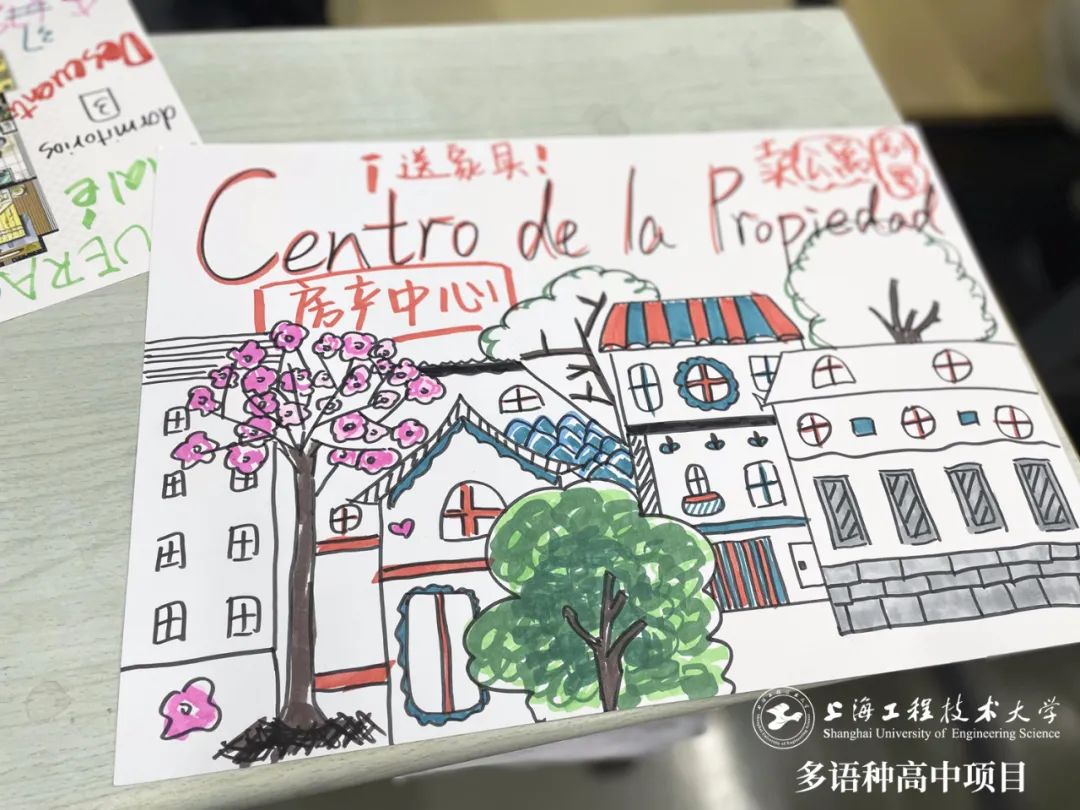 ¡送家具!
卖公寓
Centro de la Propiedad
房产中心
3
dormitorios
上海工程技术大学
Shanghai University of Engineering Science
多语种高中项目